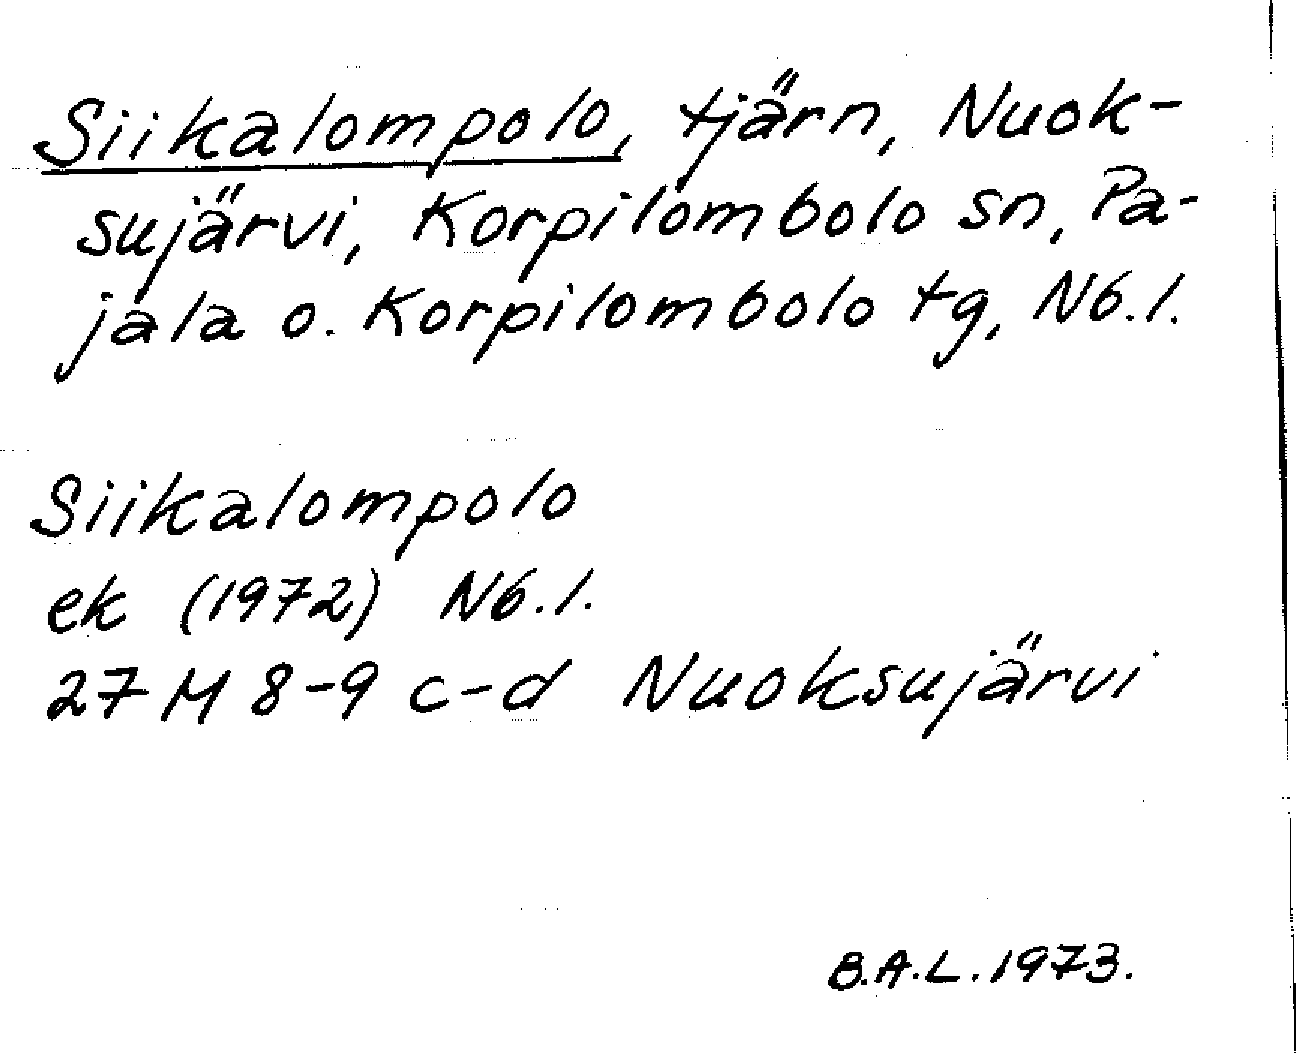 Siikalompolo, tjärn, Nuok-
sujärvi, Korpilombolo sn, Pa-
jala o. Korpilombolo tg, Nb.l.
Siikalompolo
ek (1972) Nb.l.
27 M 8-9 c-d Nuoksujärvi
B.A.L. 1973.